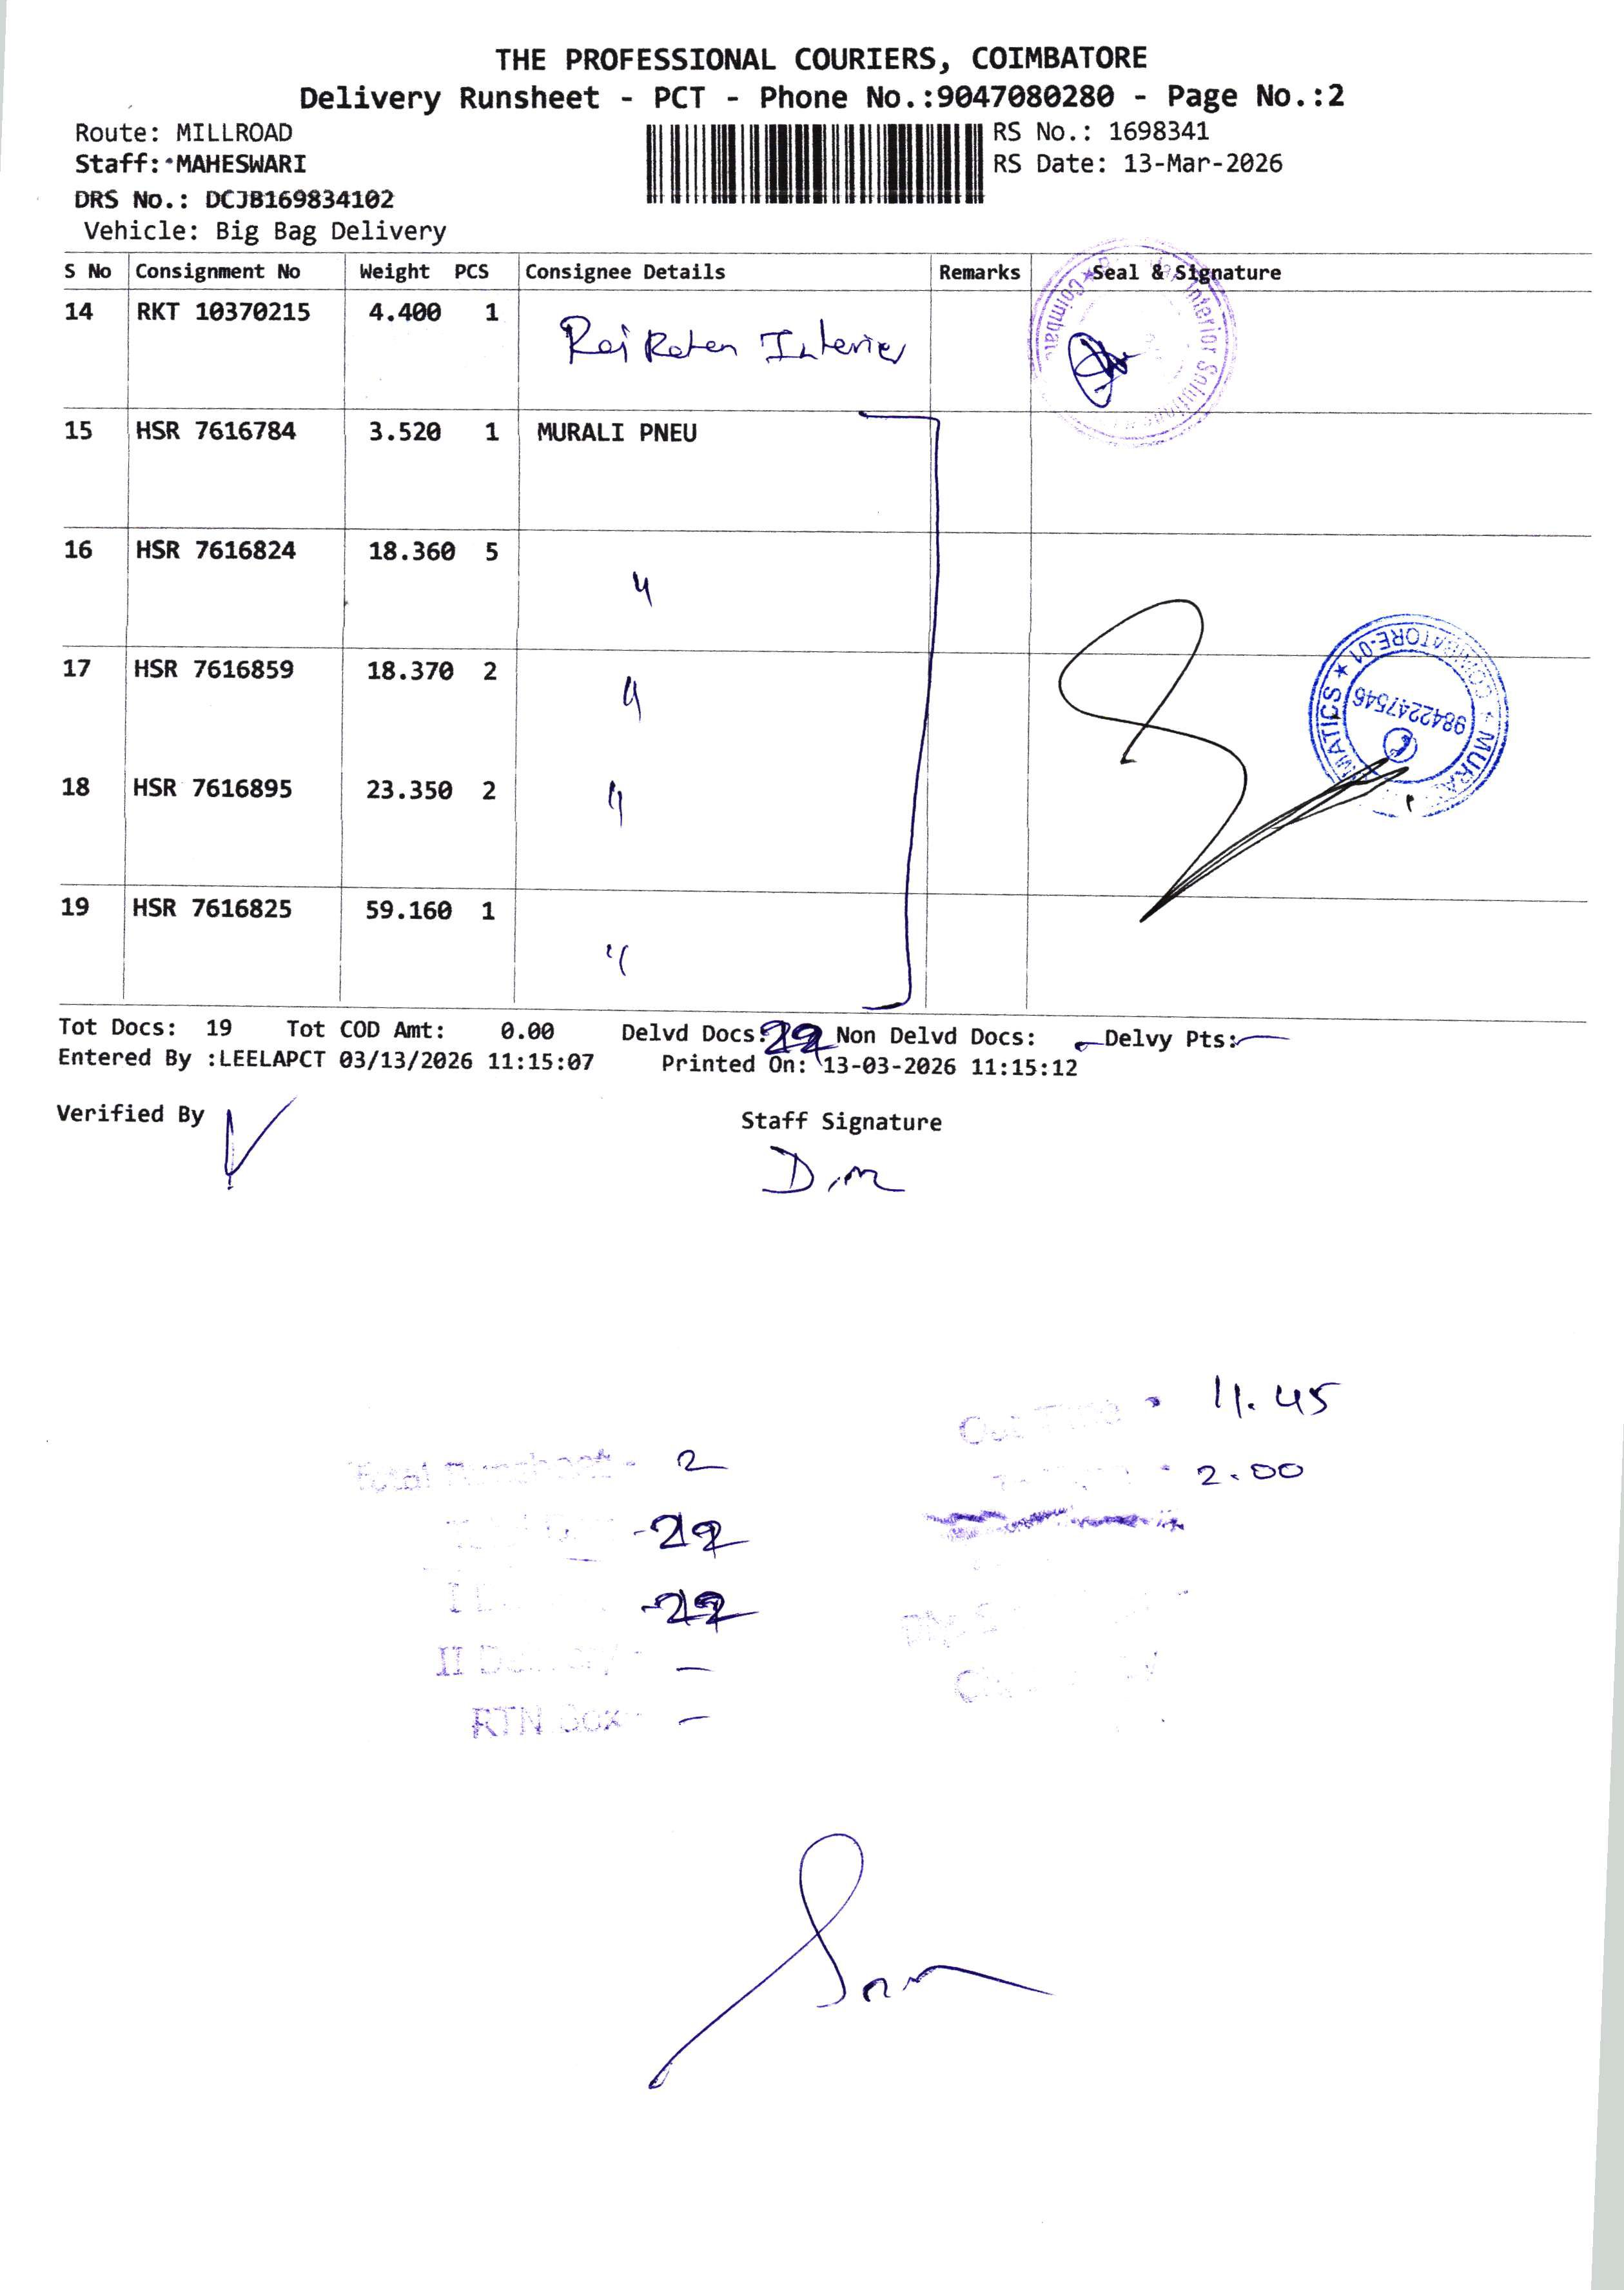 THE PROFESSIONAL COURIERS, COIMBATORE
Delivery Runsheet - PCT - Phone No.:9047080280 - Page No.:2
Route: MILLROAD
RS No.: 1698341
Staff: MAHESWARI
RS Date: 13-Mar-2026
DRS No.: DCJB169834102
Vehicle: Big Bag Delivery
S No Consignment No Weight PCS Consignee Details Remarks Seal & Signature
14 RKT 10370215 4.400 1 Raj Raten Interier
Interior Solutions
15 HSR 7616784 3.520 1 MURALI PNEU
16 HSR 7616824 18.360 5 "
17 HSR 7616859 18.370 2 "
MATICS ★ COIMBATORE-01 ★
9842247546
18 HSR 7616895 23.350 2 "
19 HSR 7616825 59.160 1 "
Tot Docs: 19 Tot COD Amt: 0.00 Delvd Docs: Non Delvd Docs: - Delvy Pts: -
Entered By :LEELAPCT 03/13/2026 11:15:07 Printed On: 13-03-2026 11:15:12
Verified By Staff Signature
D.m
Out Time - 11.45
Total Runsheet - 2
2.00
II Delivery - -
RTN Box - -